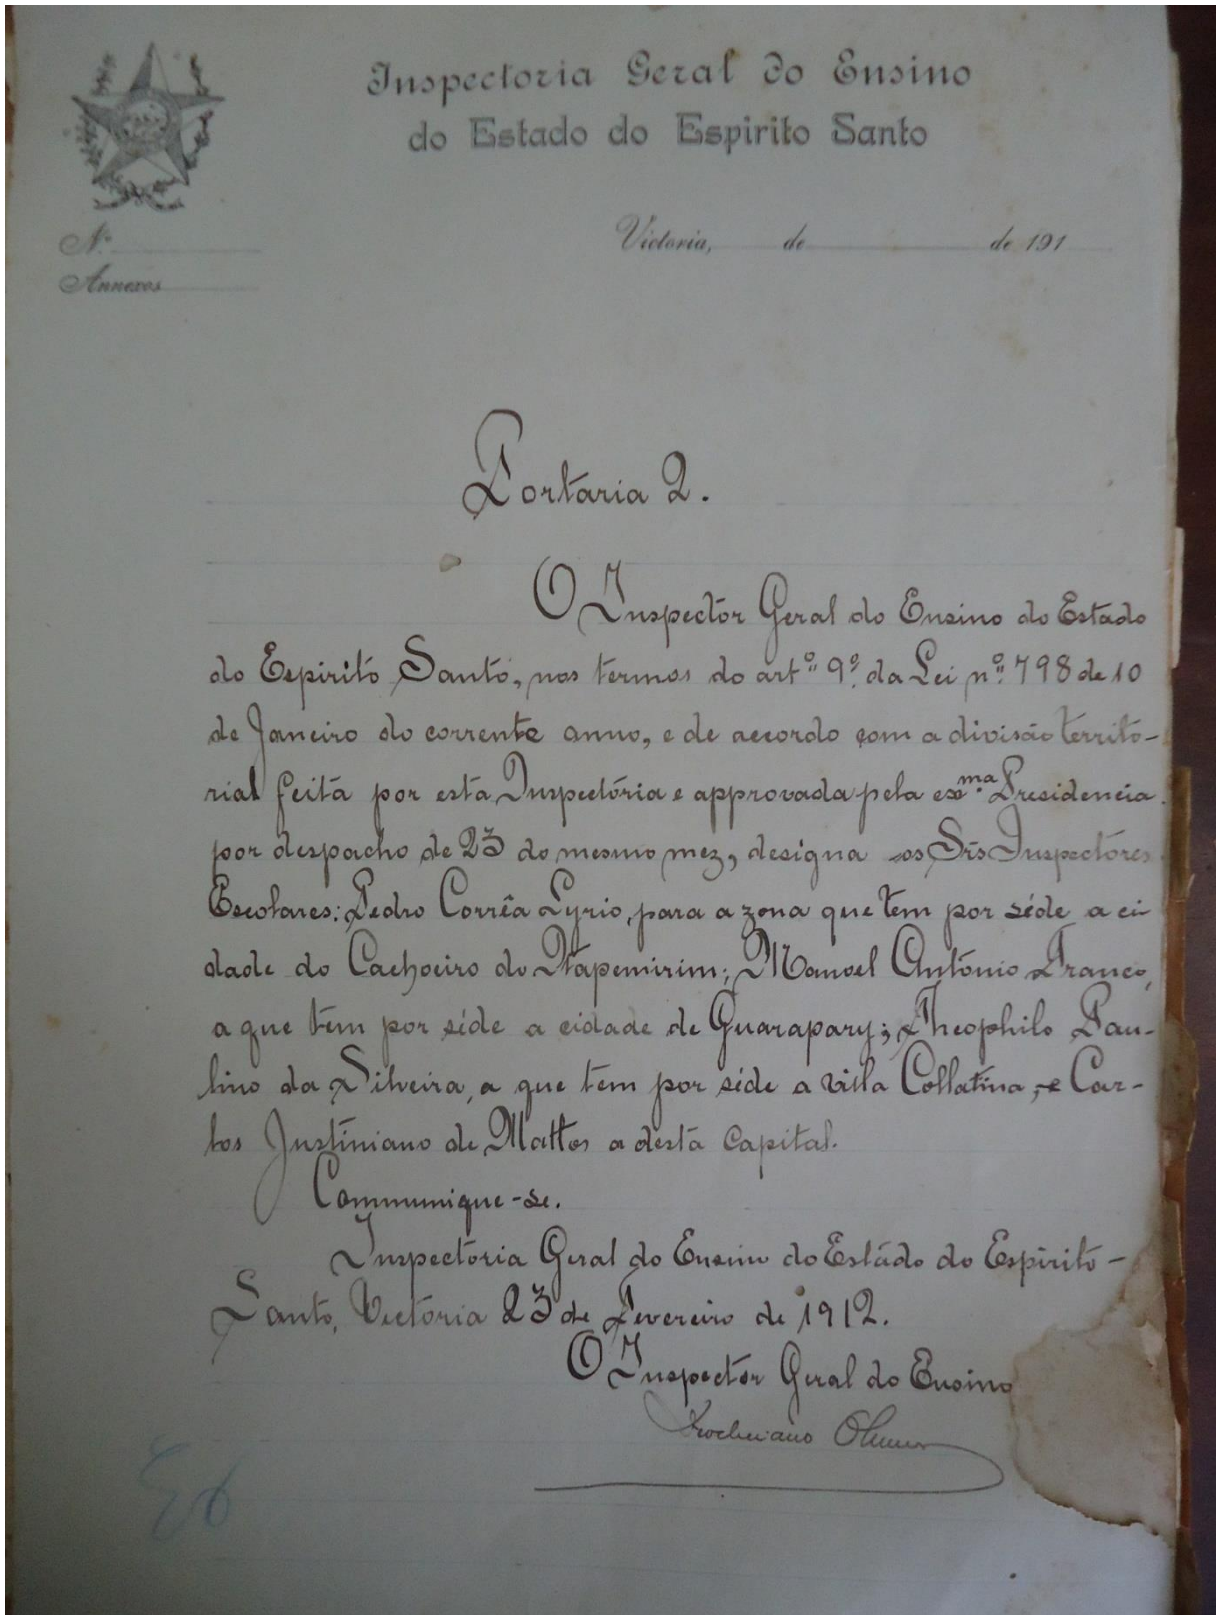 Inspectoria Geral do Ensino
do Estado do Espirito Santo
Victoria, de de 191
N.
Annexos
Portaria 2.
O Inspector Geral do Ensino do Estado
do Espirito Santo, nos termos do artº 9º da Lei nº 798 de 10
de Janeiro do corrente anno, e de accordo com a divisão territo-
rial feita por esta Inspectoria e approvada pela exma. Presidencia
por despacho de 23 do mesmo mez, designa os Srs Inspectores
Escolares: Pedro Corrêa Lyrio, para a zona que tem por séde a ci-
dade do Cachoeiro do Itapemirim; Manoel Antonio Franco,
a que tem por séde a cidade de Guarapary; Theophilo Pau-
lino da Silveira, a que tem por séde a villa Collatina, e Car-
los Justiniano de Mattos a desta Capital.
Communique-se.
Inspectoria Geral do Ensino do Estado do Espirito-
Santo, Victoria 23 de Fevereiro de 1912.
O Inspector Geral do Ensino